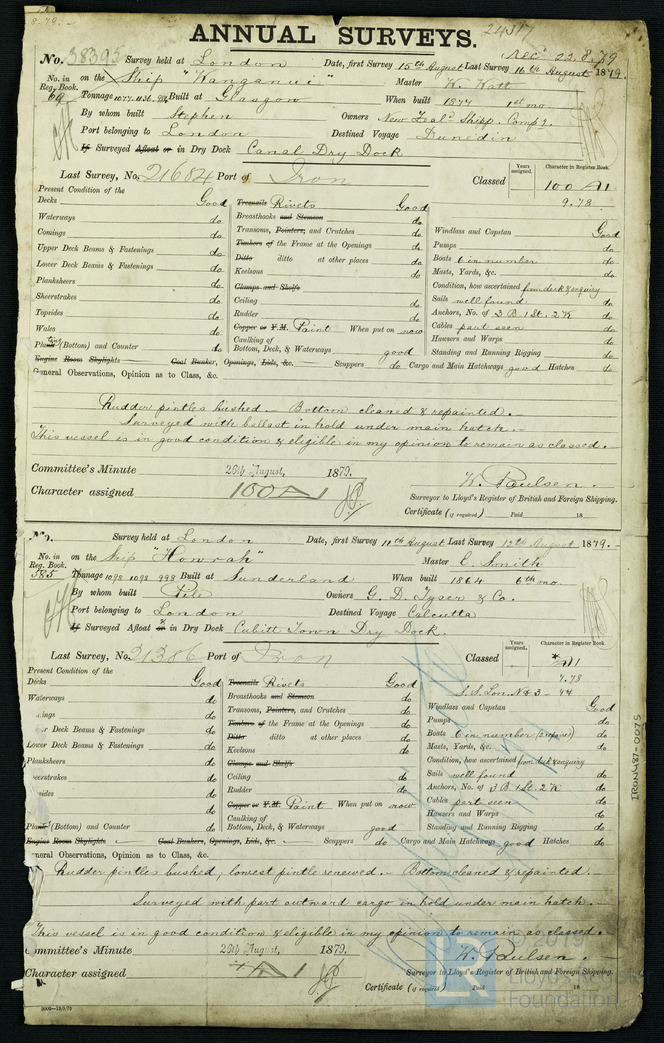 8.79.
24317
ANNUAL SURVEYS.
Rec^d 22.8.79
No. 38395 Survey held at London Date, first Survey 15th August Last Survey 16th August 1879.
No. in Reg. Book. 69 on the Ship "Wanganui" Master W. Watt
Tonnage 1077.1136. Built at Glasgow When built 1877 1st mo.
By whom built Stephen Owners New Zeal^d Shipp. Comp^y.
Port belonging to London Destined Voyage Dunedin
If Surveyed Afloat or in Dry Dock Canal Dry Dock
Last Survey, No. 21684 Port of Iron Classed Years assigned. Character in Register Book. 100 A1
9.78
Present Condition of the
Decks Good Treenails Rivets Good
Waterways do Breasthooks and Stemson do
Comings do Transoms, Pointers, and Crutches do Windlass and Capstan Good
Upper Deck Beams & Fastenings do Timbers of the Frame at the Openings do Pumps do
Lower Deck Beams & Fastenings do Ditto ditto at other places do Boats 6 in number do
Planksheers do Keelsons do Masts, Yards, &c. do
Sheerstrakes do Clamps and Shelfs Condition, how ascertained from deck & enquiry
Topsides do Ceiling do Sails well found do
Wales do Rudder do Anchors, No. of 3 B. 1 St. 2 K do
Plating (Bottom) and Counter do Copper or Y.M. Paint When put on now Cables part seen do
Caulking of Bottom, Deck, & Waterways good Hawsers and Warps do
Standing and Running Rigging do
Engine Room Skylights Coal Bunker, Openings, Lids, &c. Scuppers do Cargo and Main Hatchways good Hatches do
General Observations, Opinion as to Class, &c.
Rudder pintles bushed. Bottom cleaned & repainted.
Surveyed with ballast in hold under main hatch.
This vessel is in good condition & eligible in my opinion to remain as classed.
Committee's Minute 26th August, 1879.
Character assigned 100 A1
W. Paulsen.
Surveyor to Lloyd's Register of British and Foreign Shipping.
Certificate (if required) Paid 18
No. Survey held at London Date, first Survey 11th August Last Survey 12th August 1879.
No. in Reg. Book. 385 on the Ship "Howrah" Master E. Smith
Tonnage 1098 1098 998 Built at Sunderland When built 1864 6th mo.
By whom built Pile Owners G. D. Tyser & Co.
Port belonging to London Destined Voyage Calcutta
If Surveyed Afloat or in Dry Dock Cubitt Town Dry Dock.
Last Survey, No. 31386 Port of Iron Classed Years assigned. Character in Register Book. A1
7.78
S.S. Lon. No 3 - 74
Present Condition of the
Decks Good Treenails Rivets Good
Waterways do Breasthooks and Stemson do Windlass and Capstan Good
ings do Transoms, Pointers, and Crutches do Pumps do
r Deck Beams & Fastenings do Timbers of the Frame at the Openings do Boats 6 in number do
Lower Deck Beams & Fastenings do Ditto ditto at other places do Masts, Yards, &c. do
Planksheers do Keelsons do Condition, how ascertained from deck & enquiry
eerstrakes do Clamps and Shelfs Sails well found do
sides do Ceiling do Anchors, No. of 3 B. 1 St. 2 K do
do Rudder do Cables part seen do
Copper or Y.M. Paint When put on now Hawsers and Warps do
Plating (Bottom) and Counter do Caulking of Bottom, Deck, & Waterways good Standing and Running Rigging do
Engine Room Skylights Coal Bunkers, Openings, Lids, &c. Scuppers do Cargo and Main Hatchways good Hatches do
eneral Observations, Opinion as to Class, &c.
Rudder pintles bushed, lowest pintle renewed. Bottom cleaned & repainted.
Surveyed with part outward cargo in hold under main hatch.
This vessel is in good condition & eligible in my opinion to remain as classed.
ommittee's Minute 26th August, 1879.
Character assigned A1
W. Paulsen.
Surveyor to Lloyd's Register of British and Foreign Shipping.
Certificate (if required) Paid 18
IRON487-0075
© 2019
Lloyd's Register
Foundation